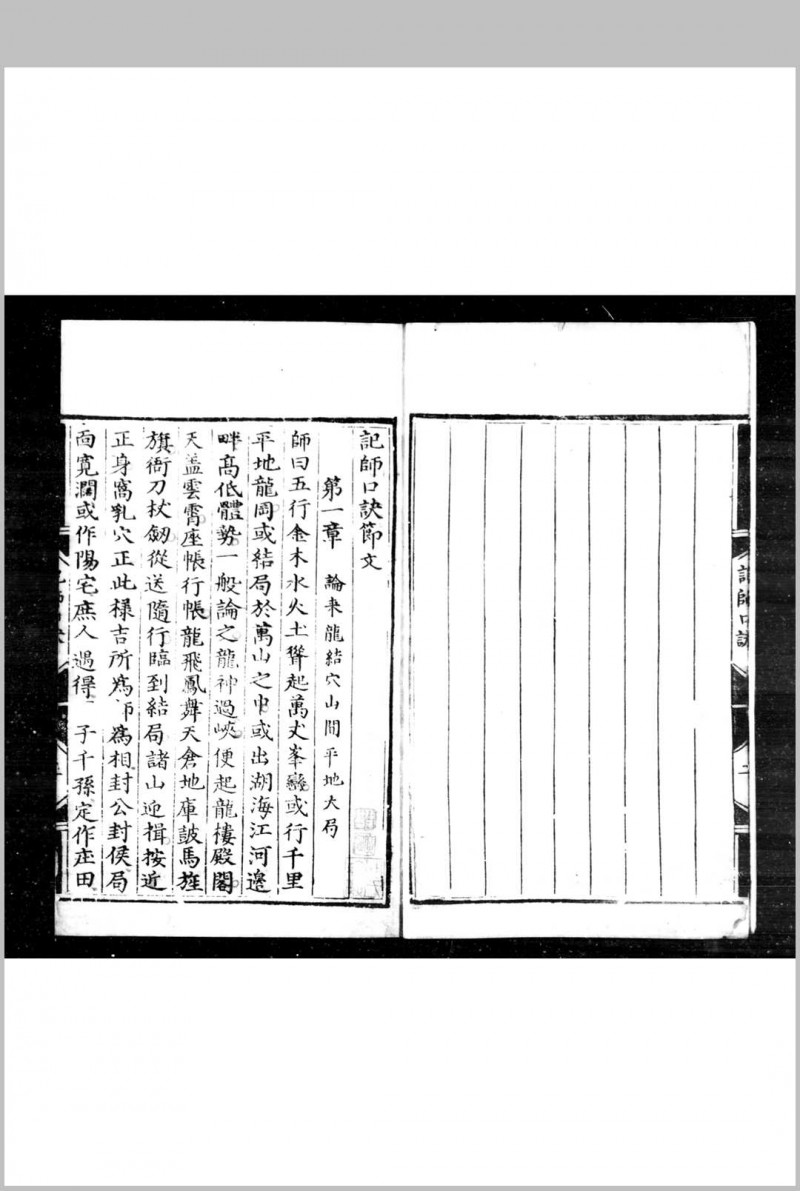 記師口訣節文
第一章 論来龍結穴山間平地大局
師曰五行金木水火土聳起萬丈峯巒或行千里
平地龍岡或結局於萬山之中或出湖海江河邊
畔高低體勢一般論之龍神過峽便起龍樓殿閣
天盖雲霄座帳行帳龍飛鳳舞天倉地庫皷馬旌
旗衙刀杖劔從送隨行臨到結局諸山迎揖按近
正身窩乳穴正此樣吉所為師為相封公封侯局
面寛濶或作陽宅庶人遇得 子千孫定作庄田
記師口訣